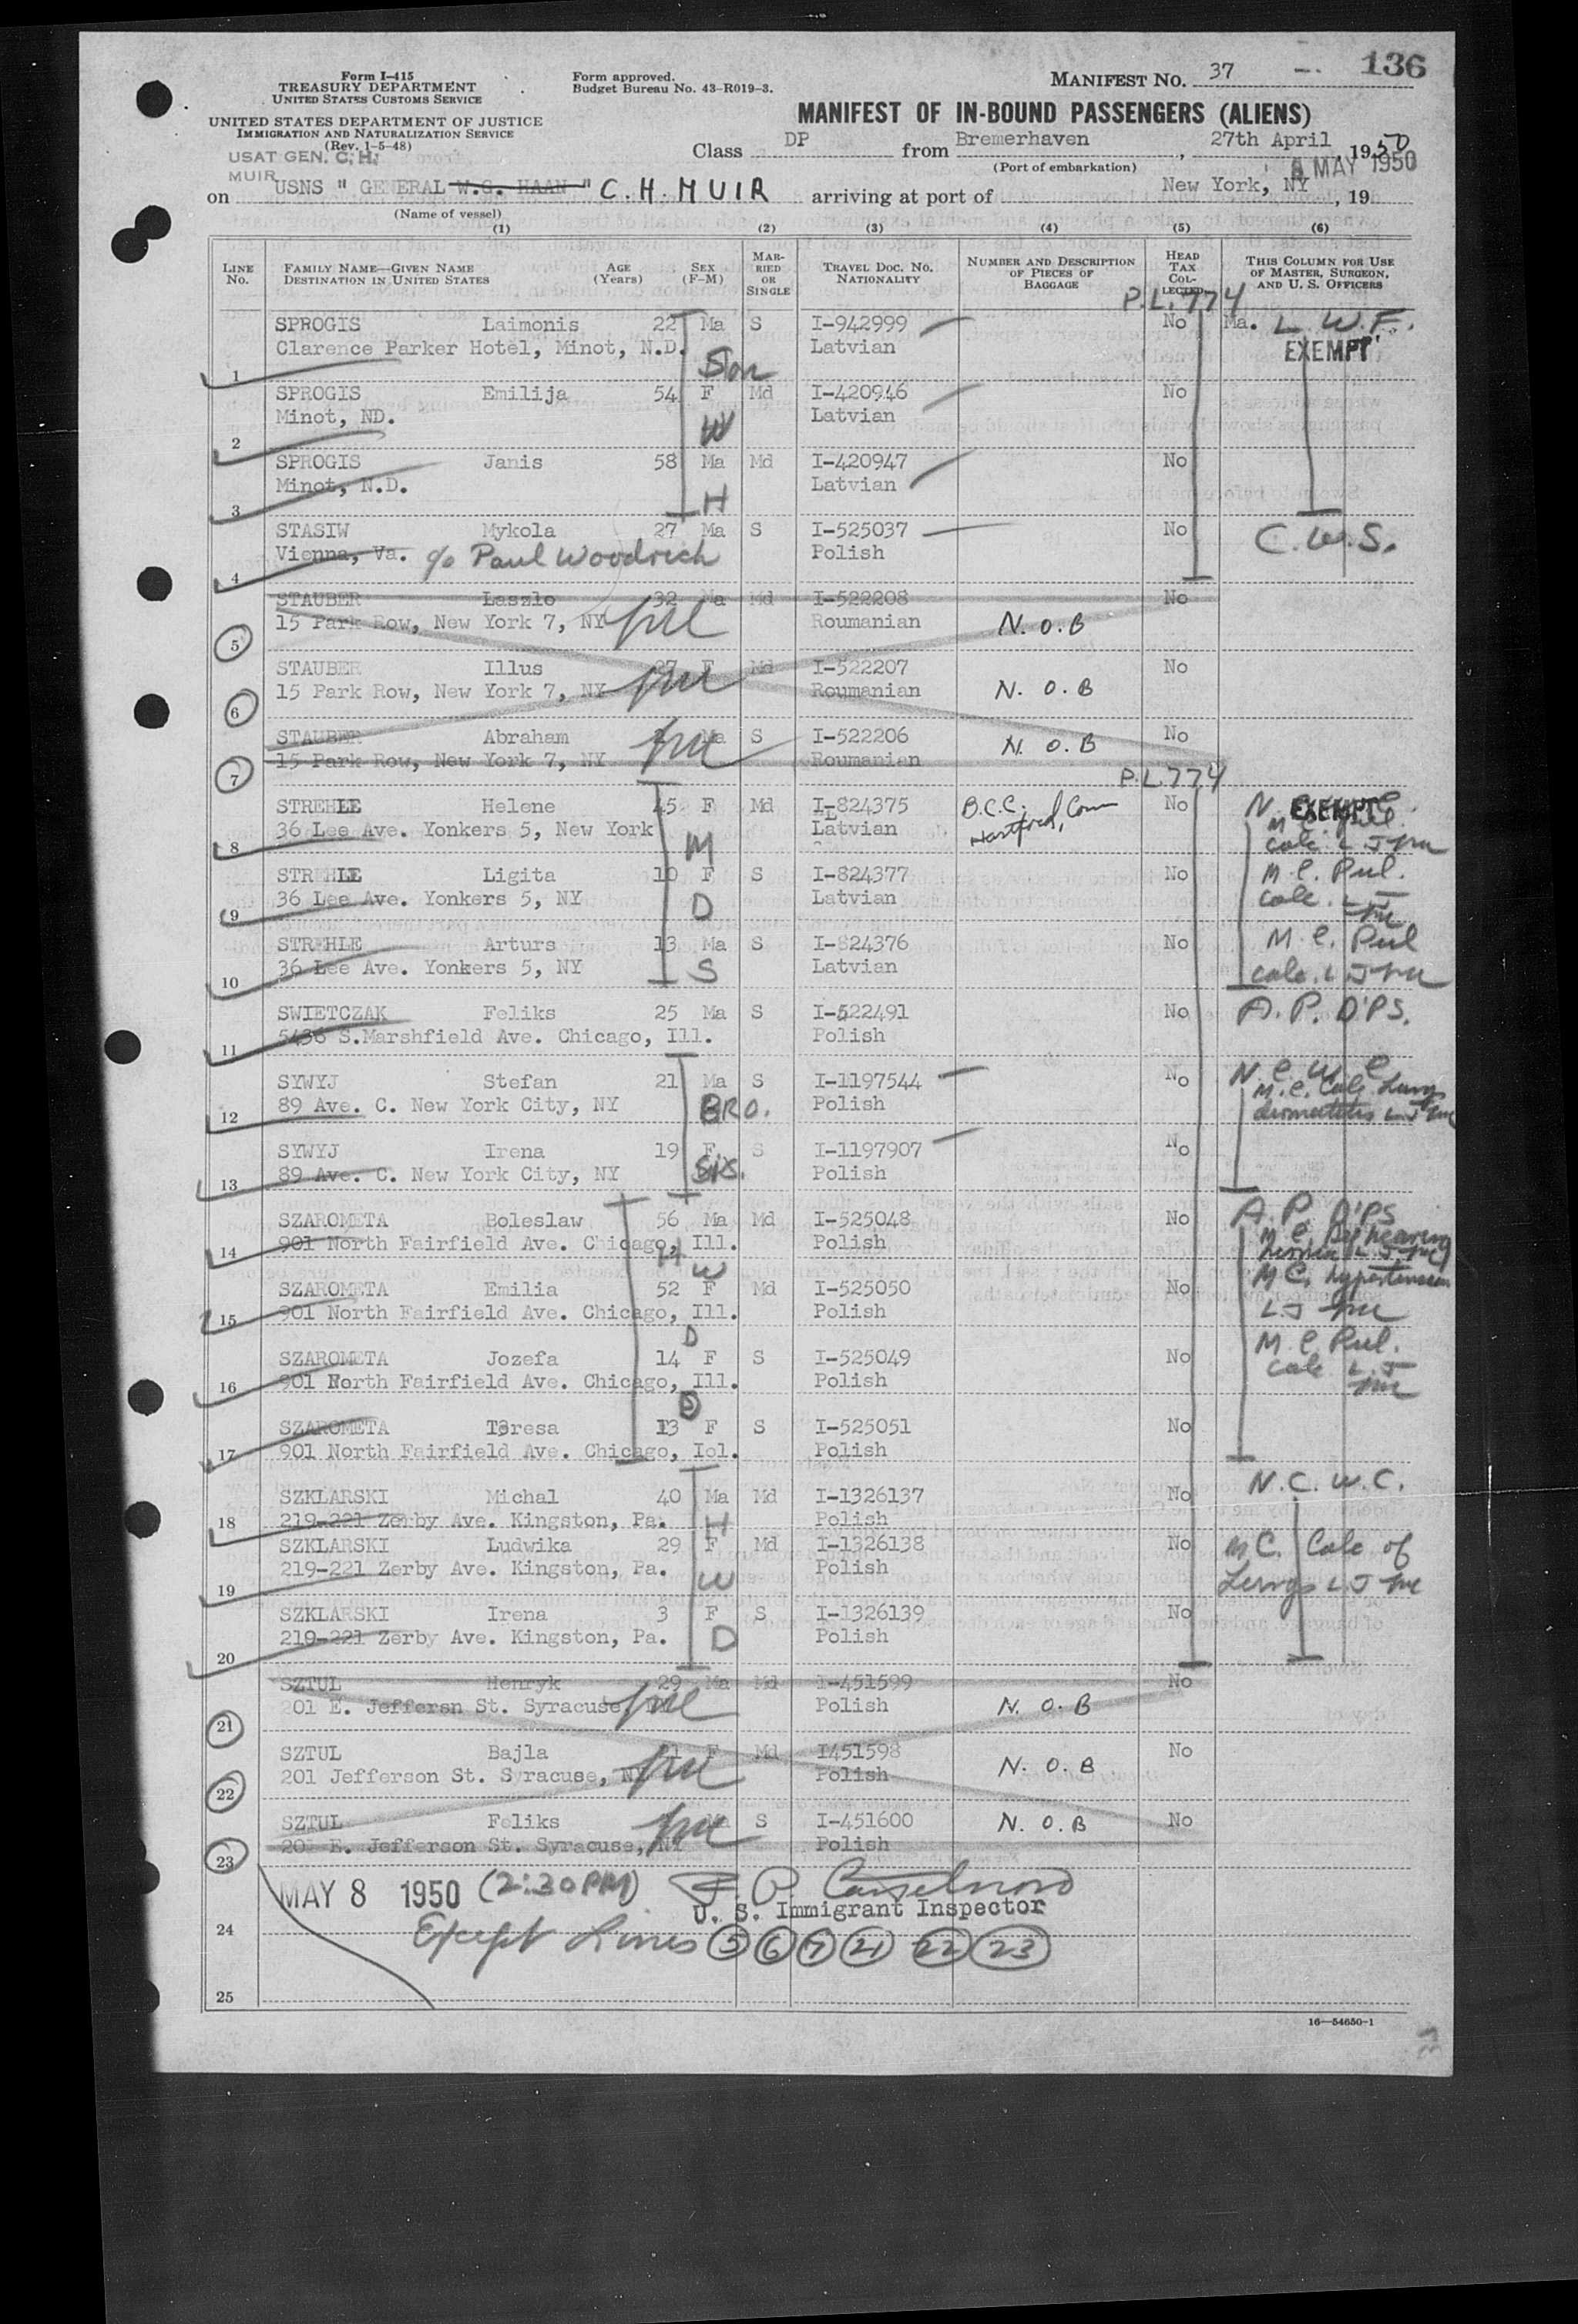 136
Form I-415
TREASURY DEPARTMENT
UNITED STATES CUSTOMS SERVICE
UNITED STATES DEPARTMENT OF JUSTICE
IMMIGRATION AND NATURALIZATION SERVICE
(Rev. 1-5-48)
Form approved.
Budget Bureau No. 43-R019-3.
MANIFEST NO. 37
MANIFEST OF IN-BOUND PASSENGERS (ALIENS)
Class DP from Bremerhaven, 27th April, 1950
(Port of embarkation)
USAT GEN. C. H. MUIR
MAY 1950
on USNS " GENERAL W.G. HAAN " C. H. MUIR arriving at port of New York, NY, 19
(Name of vessel)
(1) (2) (3) (4) (5) (6)
LINE NO. FAMILY NAME—GIVEN NAME DESTINATION IN UNITED STATES AGE (Years) SEX (F-M) MARRIED OR SINGLE TRAVEL DOC. NO. NATIONALITY NUMBER AND DESCRIPTION OF PIECES OF BAGGAGE HEAD TAX COLLECTED THIS COLUMN FOR USE OF MASTER, SURGEON, AND U. S. OFFICERS
P.L.774
SPROGIS Laimonis 22 Ma S I-942999 No Ma. L. W. F.
Clarence Parker Hotel, Minot, N.D. Latvian EXEMPT
1 Son
SPROGIS Emilija 54 F Md I-420946 No
Minot, ND. Latvian
2 W
SPROGIS Janis 58 Ma Md I-420947 No
Minot, N.D. Latvian
3 H
STASIW Mykola 27 Ma S I-525037 No C.W.S.
Vienna, Va. c/o Paul Woodrich Polish
4
STAUBER Laszlo 32 Ma Md I-522208 No
15 Park Row, New York 7, NY Roumanian N.O.B
5
STAUBER Illus 27 F Md I-522207 No
15 Park Row, New York 7, NY Roumanian N.O.B
6
STAUBER Abraham Ma S I-522206 No
15 Park Row, New York 7, NY Roumanian N.O.B
7
P.L.774
STREHLE Helene 45 F Md I-824375 B.C.C. Hartford, Conn No EXEMPT
36 Lee Ave. Yonkers 5, New York Latvian
8 M
STREHLE Ligita 10 F S I-824377 No M.C. Pul.
36 Lee Ave. Yonkers 5, NY Latvian calc.
9 D
STREHLE Arturs 13 Ma S I-824376 No M.C. Pul
36 Lee Ave. Yonkers 5, NY Latvian calc.
10 S
SWIETCZAK Feliks 25 Ma S I-522491 No A.P. D'PS.
5436 S.Marshfield Ave. Chicago, Ill. Polish
11
SYWYJ Stefan 21 Ma S I-1197544 No N.C.W.C
89 Ave. C. New York City, NY Polish M.C. Calc Lungs
12 BRO.
SYWYJ Irena 19 F S I-1197907 No
89 Ave. C. New York City, NY Polish
13 SIS.
SZAROMETA Boleslaw 56 Ma Md I-525048 No A.P. D'PS
901 North Fairfield Ave. Chicago, Ill. Polish M.C. hearing hernia
14 H
W
SZAROMETA Emilia 52 F Md I-525050 No M C. hypertension
901 North Fairfield Ave. Chicago, Ill. Polish
15
D
SZAROMETA Jozefa 14 F S I-525049 No M.C. Pul.
901 North Fairfield Ave. Chicago, Ill. Polish calc
16
D
SZAROMETA Teresa 13 F S I-525051 No
901 North Fairfield Ave. Chicago, Iol. Polish
17
SZKLARSKI Michal 40 Ma Md I-1326137 No N.C.W.C.
219-221 Zerby Ave. Kingston, Pa. Polish
18 H
SZKLARSKI Ludwika 29 F Md I-1326138 No MC. Calc of
219-221 Zerby Ave. Kingston, Pa. Polish Lungs
19 W
SZKLARSKI Irena 3 F S I-1326139 No
219-221 Zerby Ave. Kingston, Pa. Polish
20 D
SZTUL Henryk 29 Ma Md I-451599 No
201 E. Jeffersn St. Syracuse, Polish N.O.B
21
SZTUL Bajla F Md I451598 No
201 Jefferson St. Syracuse, NY Polish N.O.B
22
SZTUL Feliks S I-451600 No
201 E. Jefferson St. Syracuse, NY Polish N.O.B
23
MAY 8 1950 (2:30PM)
U. S. Immigrant Inspector
24 Except Lines 5 6 7 21 22 23
25
16—54650-1